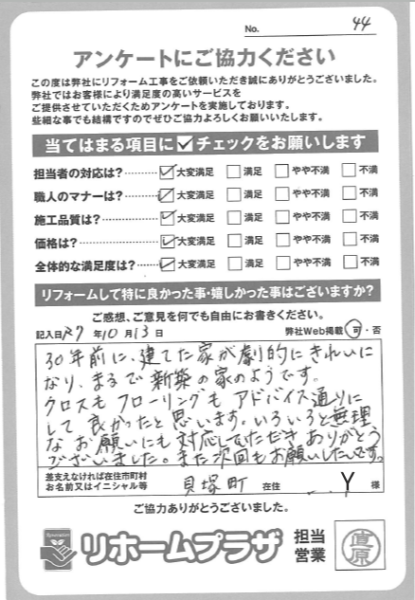 No. 44
アンケートにご協力ください
この度は弊社にリフォーム工事をご依頼いただき誠にありがとうございました。
弊社ではお客様により満足度の高いサービスを
ご提供させていただくためアンケートを実施しております。
些細な事でも結構ですのでぜひご協力よろしくお願いいたします。
当てはまる項目に✓チェックをお願いします
担当者の対応は?………✓大変満足 □満足 □やや不満 □不満
職人のマナーは?………✓大変満足 □満足 □やや不満 □不満
施工品質は?……………✓大変満足 □満足 □やや不満 □不満
価格は?…………………✓大変満足 □満足 □やや不満 □不満
全体的な満足度は?……✓大変満足 □満足 □やや不満 □不満
リフォームして特に良かった事・嬉しかった事はございますか?
ご感想、ご意見を何でも自由にお書きください。
記入日R7年10月13日 弊社Web掲載 可・否
30年前に、建てた家が劇的にきれいに
なり、まるで新築の家のようです。
クロスもフローリングもアドバイス通りに
して良かったと思います。いろいろと無理
なお願いにも対応していただきありがとう
ございました。また次回もお願いしたいです。
差支えなければ在住市町村
お名前又はイニシャル等
貝塚町 在住 Y 様
ご協力ありがとうございました。
リホームプラザ
担当
営業